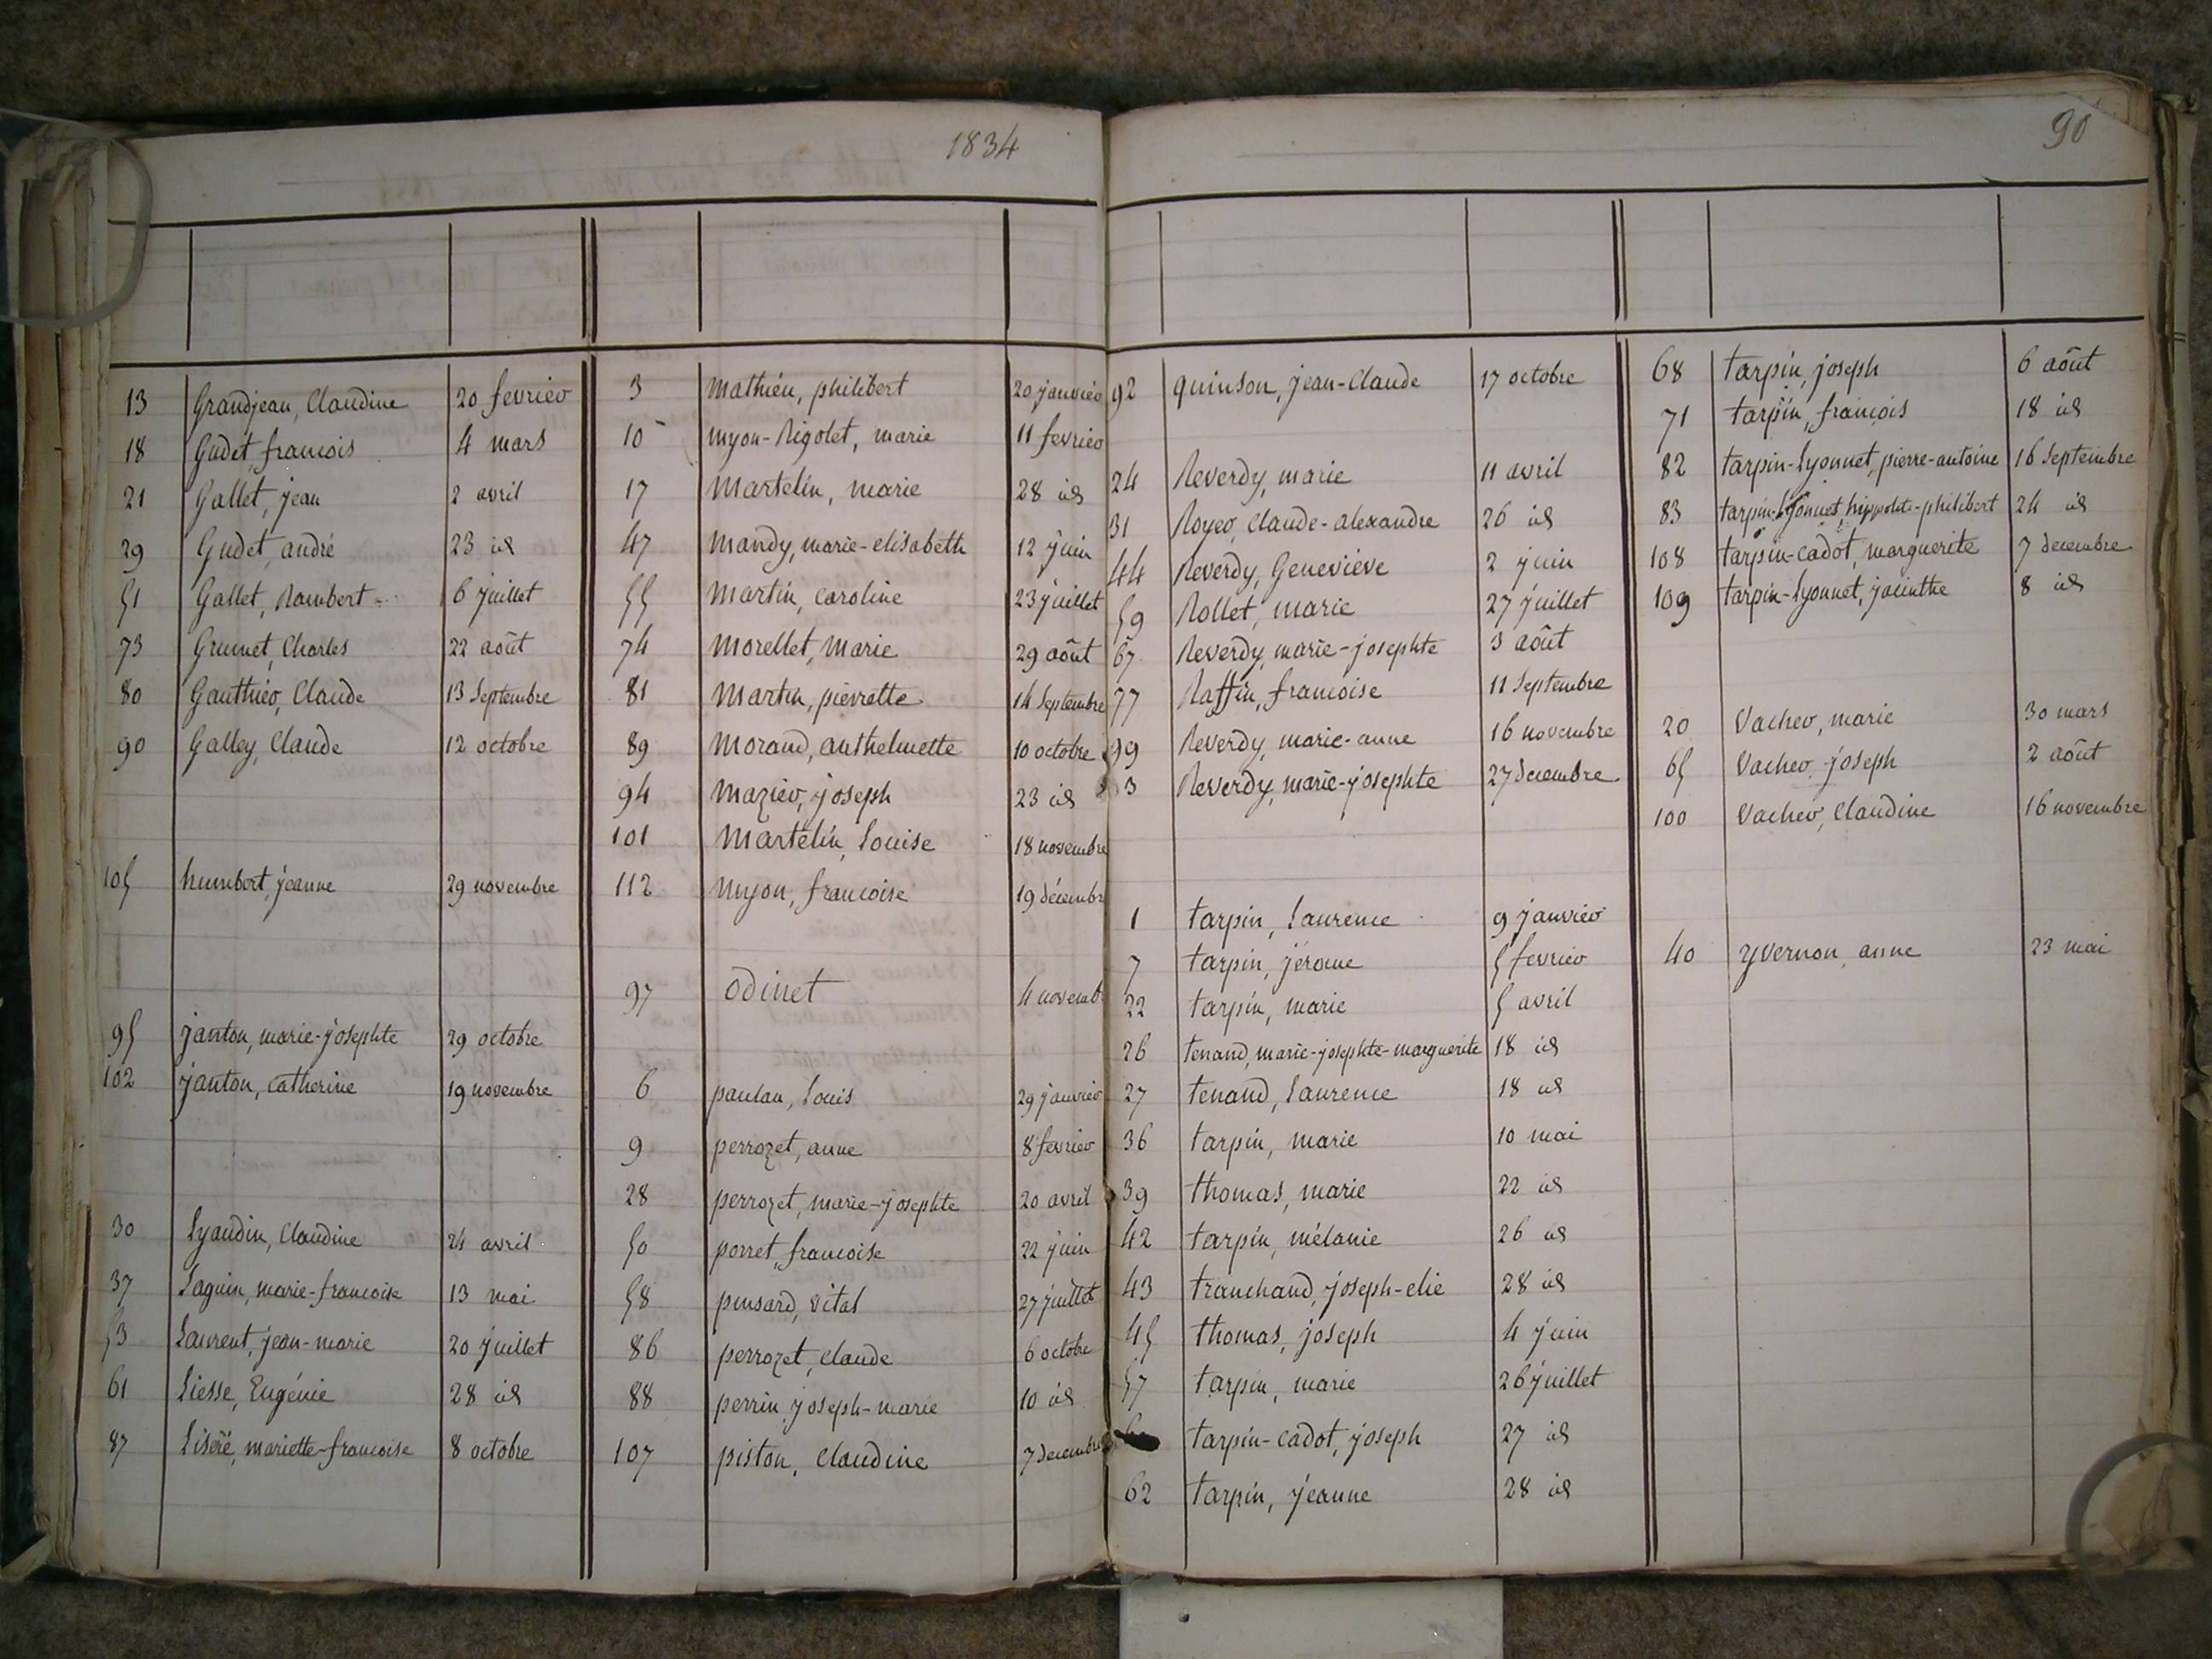 1834
13 Grandjean, Claudine 20 fevrier
18 Gudet, francois 4 mars
21 Gallet, jean 2 avril
29 Gudet, andré 23 id
51 Gallet, Rambert 6 juillet
73 Grumet, Charles 22 août
80 Gauthier, Claude 13 Septembre
90 Galley, Claude 12 octobre
105 humbert, jeanne 29 novembre
95 janton, marie-josephte 29 octobre
102 janton, catherine 19 novembre
30 Lyaudin, Claudine 24 avril
37 Laguin, marie-francoise 13 mai
53 Laurent, jean-marie 20 juillet
61 Liesse, Eugénie 28 id
87 Liséré, mariette-francoise 8 octobre
3 mathieu, philibert 20 janvier
10 myon-Rigolet, marie 11 fevrier
17 martelin, marie 28 id
47 mandy, marie-elisabeth 12 juin
55 martin, caroline 23 juillet
74 morellet, marie 29 août
81 martin, pierrette 14 Septembre
89 morand, anthelmette 10 octobre
94 mazier, joseph 23 id
101 martelin, Louise 18 novembre
112 myon, francoise 19 décembre
97 odinet 4 novemb
6 paulan, Louis 29 janvier
9 perrozet, anne 8 fevrier
28 perrozet, marie-josephte 20 avril
50 porret, francoise 22 juin
58 pinsard, vital 27 juillet
86 perrozet, claude 6 octobre
88 perrin, joseph-marie 10 id
107 piston, Claudine 7 decembre
90
92 quinson, jean-Claude 17 octobre
24 Reverdy, marie 11 avril
31 Royer, Claude-alexandre 26 id
44 Reverdy, Geneviève 2 juin
59 Rollet, marie 27 juillet
67 Reverdy, marie-josephte 3 août
77 Raffin, francoise 11 Septembre
99 Reverdy, marie-anne 16 novembre
3 Reverdy, marie-josephte 27 decembre
1 tarpin, Laurence 9 janvier
7 tarpin, jérome 5 fevrier
22 tarpin, marie 5 avril
26 tenand, marie-josephte-marguerite 18 id
27 tenand, Laurence 18 id
36 tarpin, marie 10 mai
39 thomas, marie 22 id
42 tarpin, mélanie 26 id
43 tranchand, joseph-elie 28 id
45 thomas, joseph 4 juin
57 tarpin, marie 26 juillet
tarpin-cadot, joseph 27 id
62 tarpin, jeanne 28 id
68 tarpin, joseph 6 août
71 tarpin, francois 18 id
82 tarpin-Lyonnet, pierre-antoine 16 Septembre
83 tarpin-Lyonnet, hippolite-philibert 24 id
108 tarpin-cadot, marguerite 7 decembre
109 tarpin-Lyonnet, jacinthe 8 id
20 Vacher, marie 30 mars
65 Vacher, joseph 2 août
100 Vacher, Claudine 16 novembre
40 yvernon, anne 23 mai